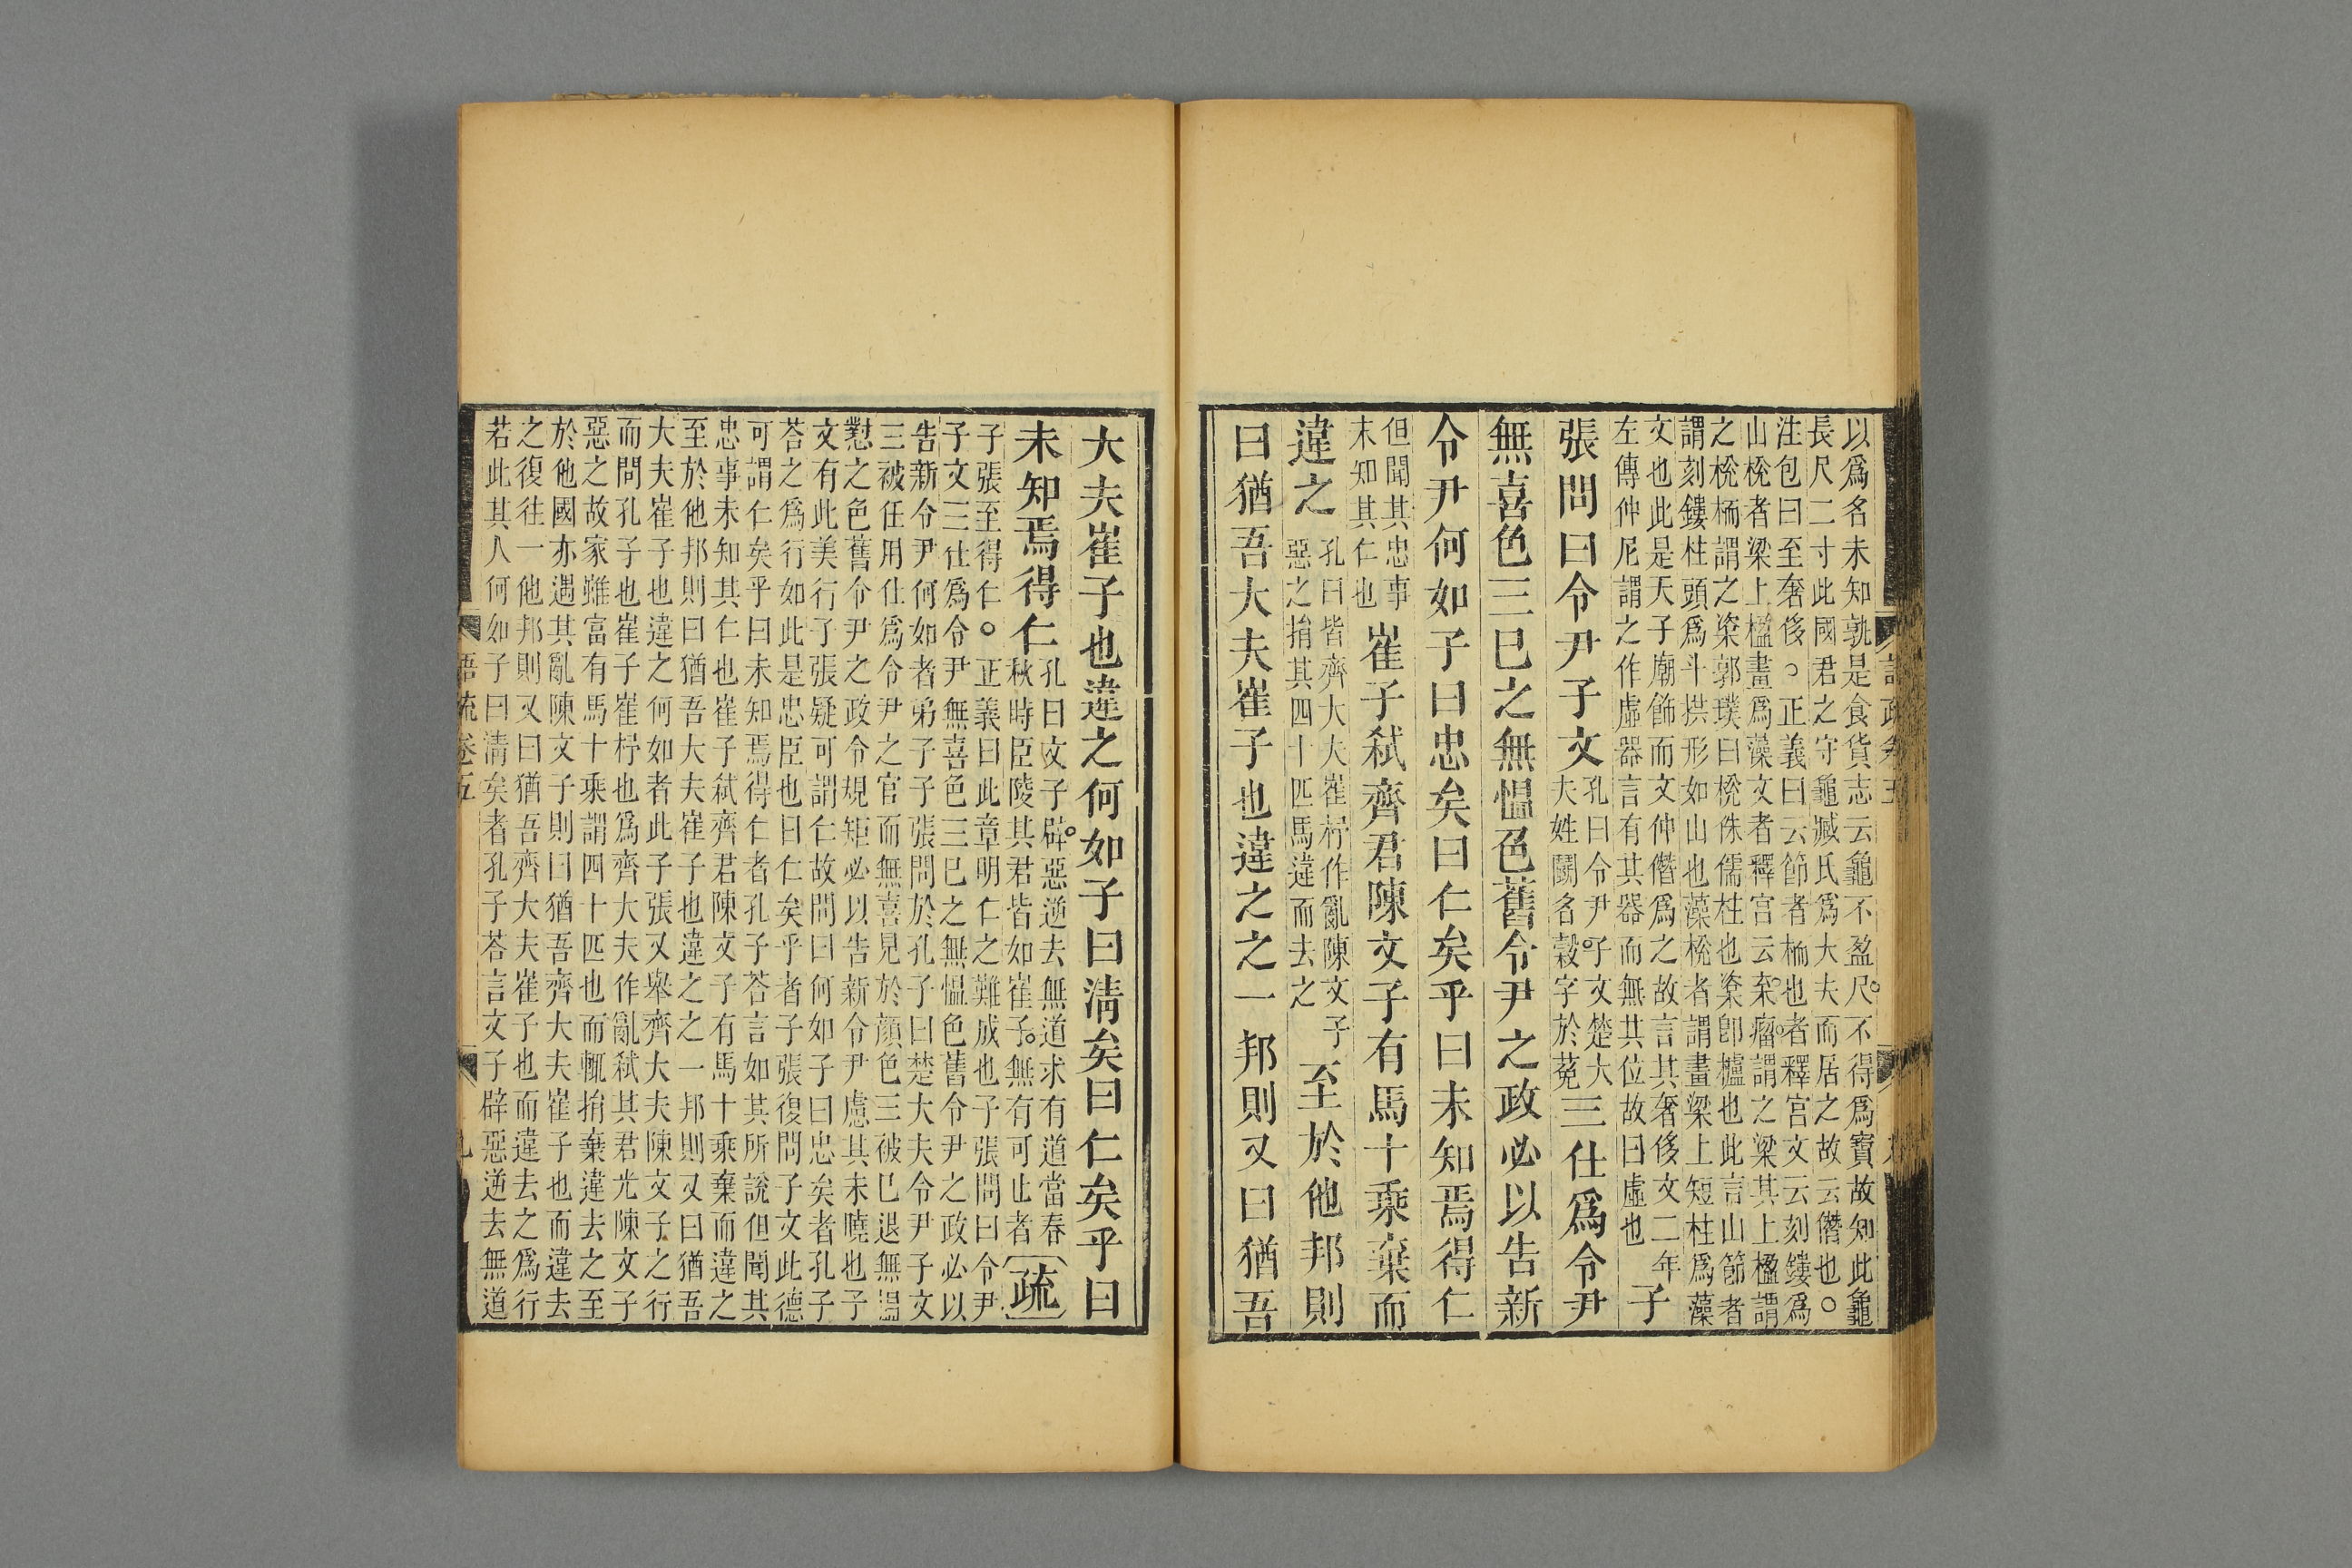 以爲名未知孰是食貨志云龜不盈尺不得爲寶故知此龜
長尺二寸此國君之守龜臧氏爲大夫而居之故云僭也○
注包曰至奢侈○正義曰云節者栭也者釋宮文云刻鏤爲
山梲者梁上楹畫爲藻文者釋宮云杗廇謂之梁其上楹謂
之梲栭謂之楶郭璞曰梲侏儒柱也楶卽櫨也此言山節者
謂刻鏤柱頭爲斗拱形如山也藻梲者謂畫梁上短柱爲藻
文也此是天子廟飾而文仲僭爲之故言其奢侈文二年
左傳仲尼謂之作虛器言有其器而無其位故曰虛也
子
張問曰令尹子文
孔曰令尹子文楚大
夫姓鬬名穀字於菟
三仕爲令尹
無喜色三已之無慍色舊令尹之政必以告新
令尹何如子曰忠矣曰仁矣乎曰未知焉得仁
但聞其忠事
未知其仁也
崔子弑齊君陳文子有馬十乘棄而
違之
孔曰皆齊大夫崔杼作亂陳文子
惡之捐其四十匹馬違而去之
至於他邦則
曰猶吾大夫崔子也違之之一邦則又曰猶吾
大夫崔子也違之何如子曰淸矣曰仁矣乎曰
未知焉得仁
孔曰文子辟惡逆去無道求有道當春
秋時臣陵其君皆如崔子無有可止者
疏
子張至得仁○正義曰此章明仁之難成也子張問曰令尹
子文三仕爲令尹無喜色三已之無慍色舊令尹之政必以
告新令尹何如者弟子子張問於孔子曰楚大夫令尹子文
三被任用仕爲令尹之官而無喜見於顏色三被已退無慍
懟之色舊令尹之政令規矩必以告新令尹慮其未曉也子
文有此美行子張疑可謂仁故問曰何如子曰忠矣者孔子
荅之爲行如此是忠臣也曰仁矣乎者子張復問子文此德
可謂仁矣乎曰未知焉得仁者孔子荅言如其所說但聞其
忠事未知其仁也崔子弑齊君陳文子有馬十乘棄而違之
至於他邦則曰猶吾大夫崔子也違之之一邦則又曰猶吾
大夫崔子也違之何如者此子張又舉齊大夫陳文子之行
而問孔子也崔子崔杼也爲齊大夫作亂弑其君光陳文子
惡之故家雖富有馬十乘謂四十匹也而輒捐棄違去之至
於他國亦遇其亂陳文子則曰猶吾齊大夫崔子也而違去
之復往一他邦則又曰猶吾齊大夫崔子也而違去之爲行
若此其人何如子曰淸矣者孔子荅言文子辟惡逆去無道
語疏卷五